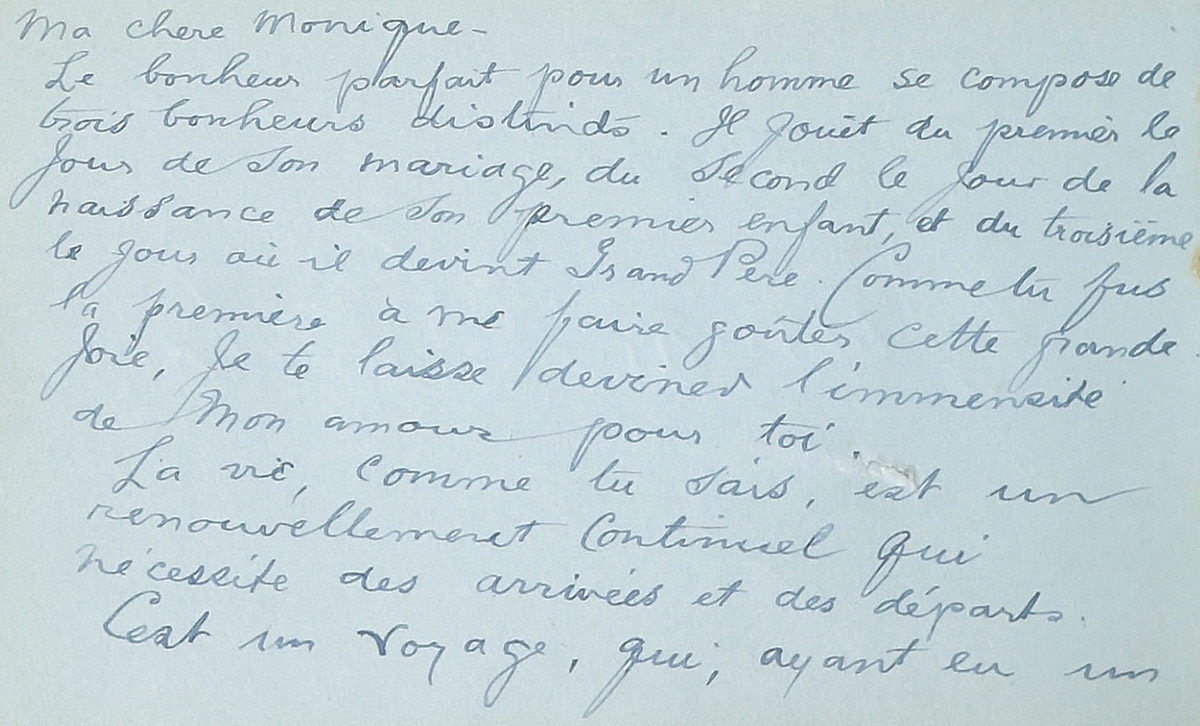 Ma chere Monique -
Le bonheur parfait pour un homme se compose de
trois bonheurs distincts. Il jouit du premier le
Jour de son mariage, du second le jour de la
naissance de son premier enfant, et du troisième
le jour où il devint Grand Père. Comme tu fus
la première à me faire goûter cette grande
Joie, Je te laisse deviner l'immensité
de Mon amour pour toi.
La vie, comme tu sais, est un
renouvellement Continuel qui
nécessite des arrivées et des départs.
C'est un voyage, qui, ayant eu un